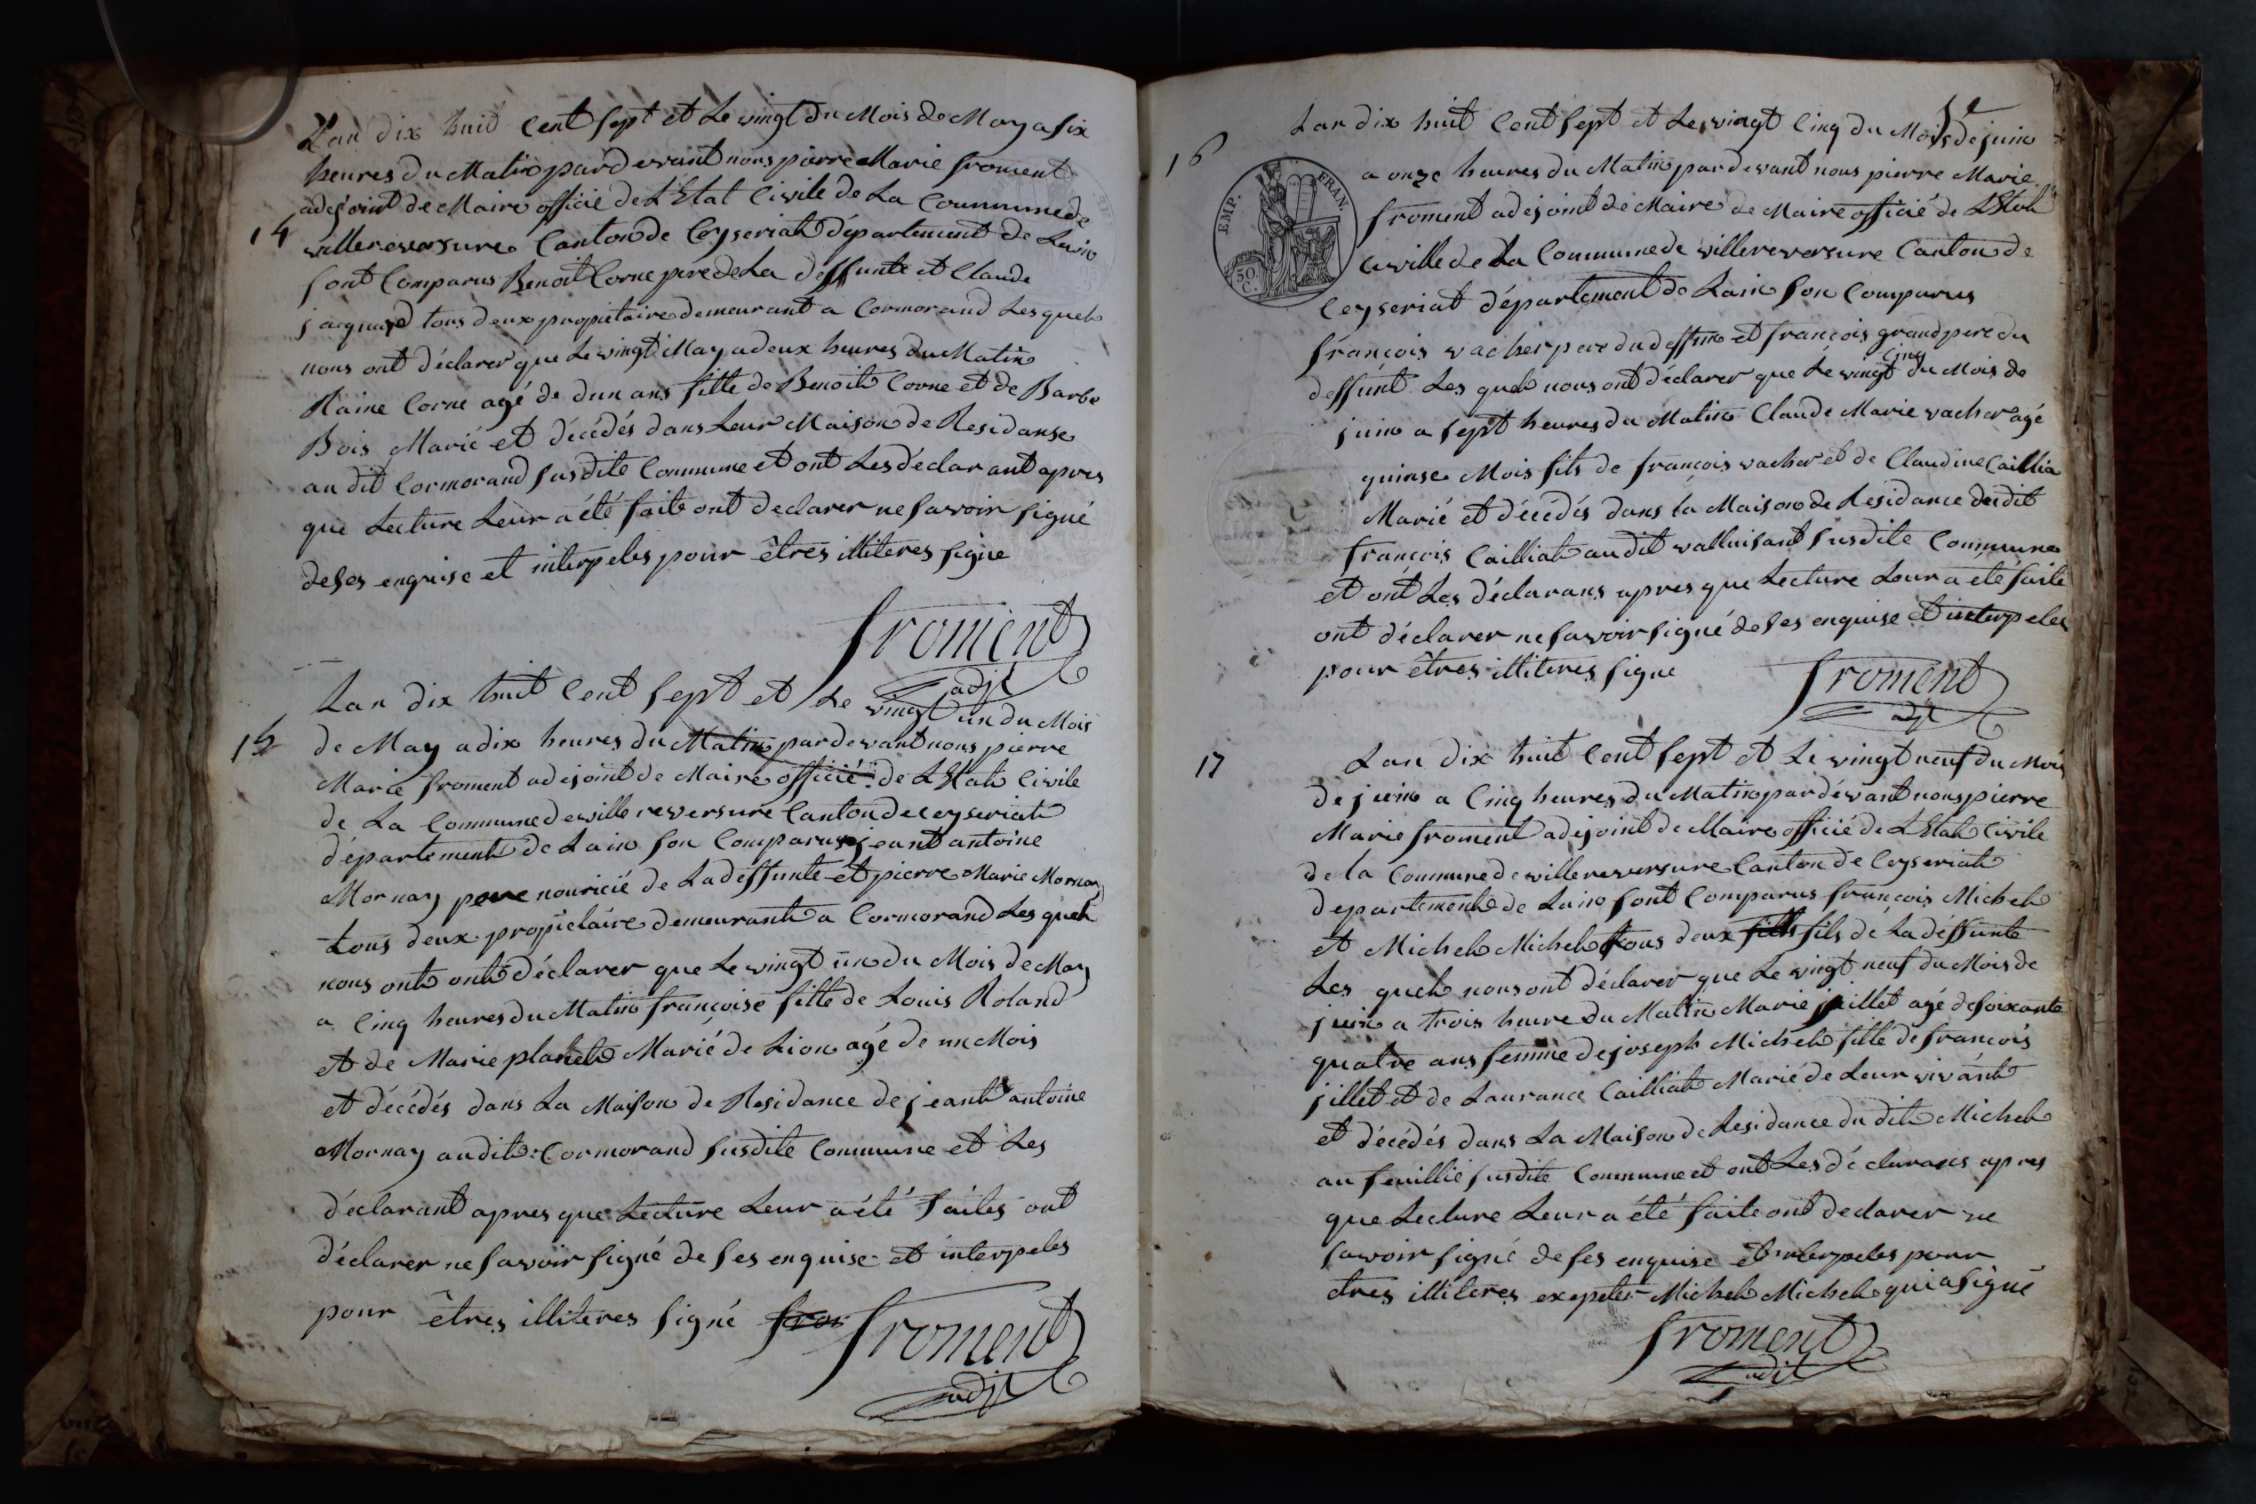 14
Lan dix huit Cent sept et Le vingt du Mois de May a six
heures du Matin pardevant nous pierre Marie froment
adejoint de Maire officié de L'Etat Civile de La Commune de
villereversure Canton de Ceyseriat département de Lain
sont Comparus Benoit Corne pere de La deffunte et Claude
jaquand tous deux propietaire demeurant a Cormorand Lesquels
nous ont déclarer que Le vingt May a deux heures du Matin
Raine Corne agé de dun ans fille de Benoit Corne et de Barbe
Bois Marié et décédés dans Leur Maison de Residanse
au dit Cormorand susdite Commune et ont Les déclarant apres
que Lecture Leur a été faite ont declarer ne savoir signé
de ses enquise et interpeles pour êtres illiteres signe
froment
adjt
15
Lan dix huit Cent sept et Le vingt un du Mois
de May a dix heures du Matin pardevant nous pierre
Marie froment adejoint de Maire officié de L'Etat Civile
de La Commune de villereversure Canton de ceyseriat
département de Lain son Comparus jeant antoine
Mornay pere nouricié de La deffunte et pierre Marie Mornay
tous deux propiétaire demeurant a Cormorand Les quels
nous ont ont déclarer que Le vingt un du Mois de May
a Cinq heures du Matin françoise fille de Louis Roland
et de Marie planet Marié de Lion agé de un Mois
et décédés dans La Maison de Residance de jeant antoine
Mornay au dit Cormorand susdite Commune et Les
déclarant apres que Lecture Leur a été faites ont
déclarer ne savoir signé de ses enquise et interpeles
pour êtres illiteres signé fro froment
adjt
16
Lan dix huit Cent sept et Le vingt Cinq du Mois de juin
EMP. FRAN.
50
C.
a onze heures du Matin pardevant nous pierre Marie
froment adejoint de Maire de Maire officié de L'Etat
civille de La Commune de villereversure Canton de
Ceyseriat département de Lain son Comparus
françois vacher pere du deffun et françois grand pere du
deffunt Les quels nous ont déclarer que Le vingt Cinq du Mois de
juin a sept heures du Matin Claude Marie vacher agé
quinse Mois fils de françois vacher et de Claudine Caillia
Marié et décédés dans la Maison de Residance dudit
françois Cailliat au dit valluisant susdite Commune
et ont Les déclarans apres que Lecture Leur a été faite
ont déclarer ne savoir signé de ses enquise et interpeles
pour êtres illiteres signe froment
adjt
17
Lan dix huit Cent sept et Le vingt neuf du Mois
de juin a Cinq heures du Matin pardevant nous pierre
Marie froment adejoint de Maire officié de L'Etat Civile
de la Commune de villereversure Canton de Ceyseriat
departement de Lain sont Comparus françois Michel
et Michel Michel tous deux fills fils de La déffunte
Les quels nous ont déclarer que Le vingt neuf du Mois de
juin a trois heure du Matin Marie jeillet agé de soixante
quatre ans femme de joseph Michel fille de françois
jillet et de Laurance Cailliat Marié de Leur vivant
et décédés dans La Maison de Residance du dit Michel
au feuillie susdite Commune et ont Les déclarans apres
que Lecture Leur a été faite ont declarer ne
savoir signé de ses enquise et interpeles pour
etres illiteres exepeter Michel Michel qui a signé
froment
adjt